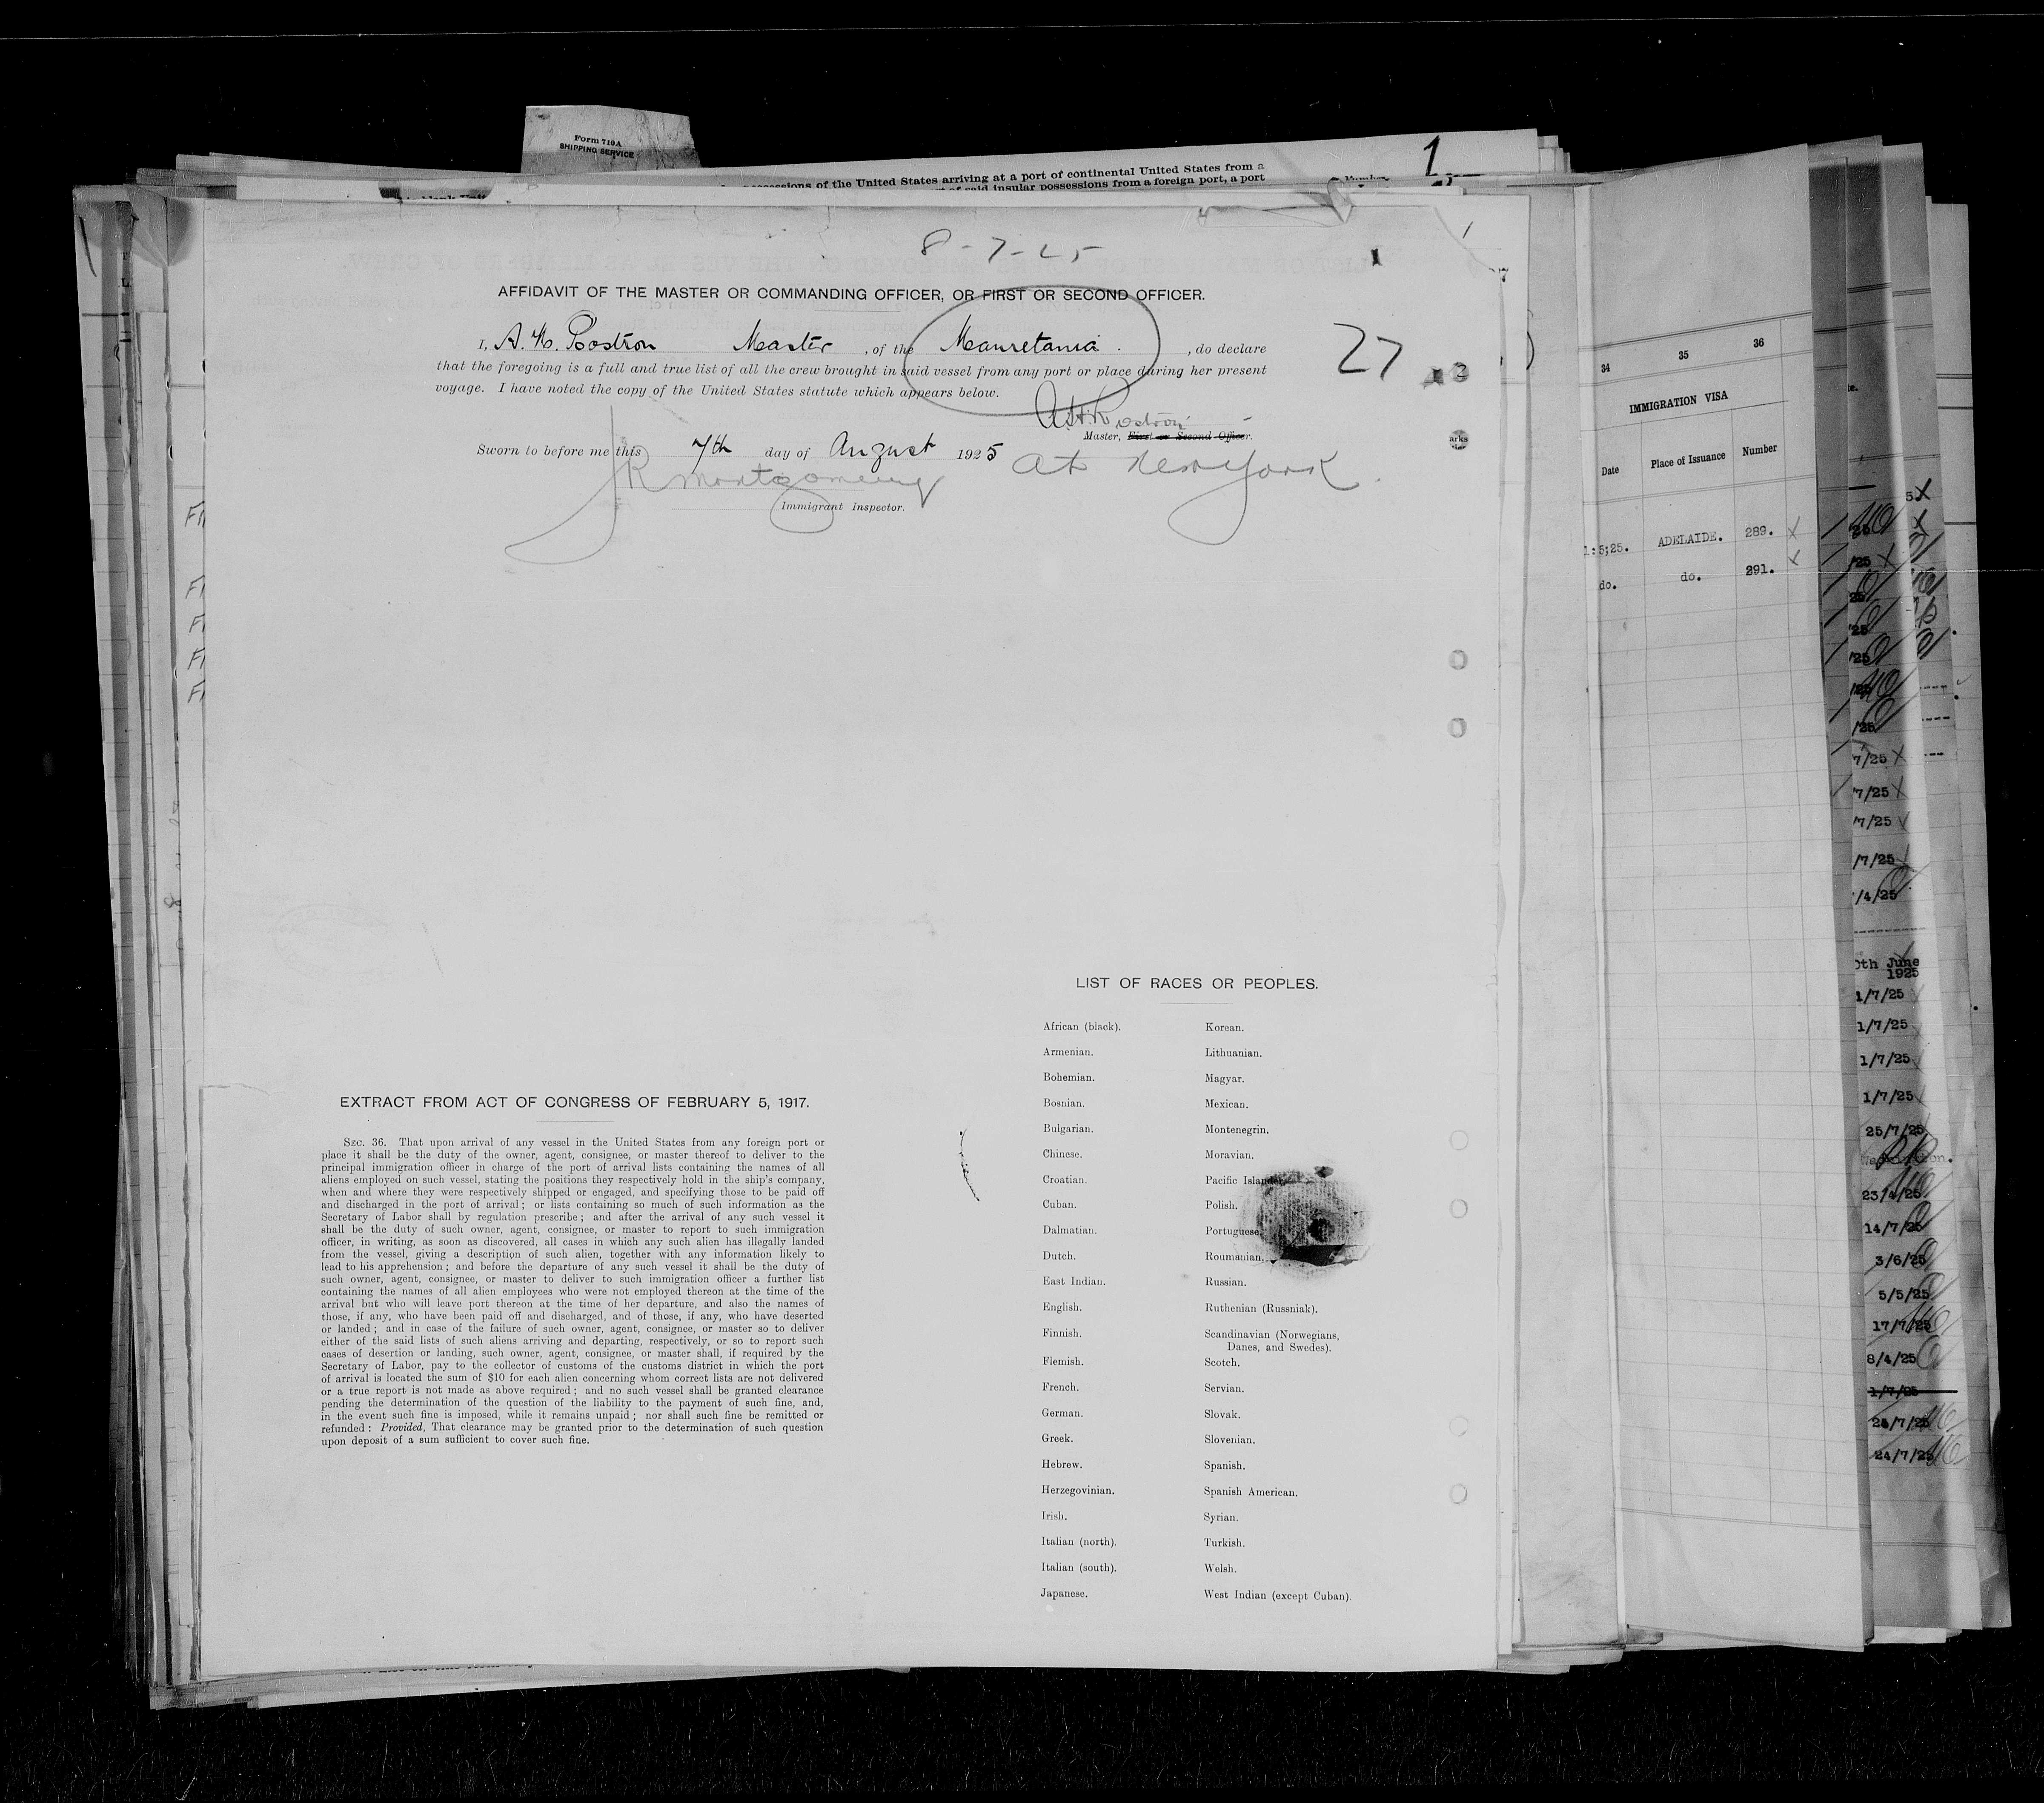 Form 710A
SHIPPING SERVICE
1
possessions of the United States arriving at a port of continental United States from a
of said insular possessions from a foreign port, a port
8-7-25
AFFIDAVIT OF THE MASTER OR COMMANDING OFFICER, OR FIRST OR SECOND OFFICER.
I, A. H. Rostron Master, of the Mauretania., do declare
that the foregoing is a full and true list of all the crew brought in said vessel from any port or place during her present
voyage. I have noted the copy of the United States statute which appears below.
27
A. H. Rostron
Master, First or Second Officer.
Sworn to before me this 7th day of August 1925 at New York.
JR Montgomery
Immigrant Inspector.
LIST OF RACES OR PEOPLES.
African (black). Korean.
Armenian. Lithuanian.
Bohemian. Magyar.
Bosnian. Mexican.
Bulgarian. Montenegrin.
Chinese. Moravian.
Croatian. Pacific Islander.
Cuban. Polish.
Dalmatian. Portuguese.
Dutch. Roumanian.
East Indian. Russian.
English. Ruthenian (Russniak).
Finnish. Scandinavian (Norwegians,
Danes, and Swedes).
Flemish. Scotch.
French. Servian.
German. Slovak.
Greek. Slovenian.
Hebrew. Spanish.
Herzegovinian. Spanish American.
Irish. Syrian.
Italian (north). Turkish.
Italian (south). Welsh.
Japanese. West Indian (except Cuban).
EXTRACT FROM ACT OF CONGRESS OF FEBRUARY 5, 1917.
SEC. 36. That upon arrival of any vessel in the United States from any foreign port or
place it shall be the duty of the owner, agent, consignee, or master thereof to deliver to the
principal immigration officer in charge of the port of arrival lists containing the names of all
aliens employed on such vessel, stating the positions they respectively hold in the ship's company,
when and where they were respectively shipped or engaged, and specifying those to be paid off
and discharged in the port of arrival; or lists containing so much of such information as the
Secretary of Labor shall by regulation prescribe; and after the arrival of any such vessel it
shall be the duty of such owner, agent, consignee, or master to report to such immigration
officer, in writing, as soon as discovered, all cases in which any such alien has illegally landed
from the vessel, giving a description of such alien, together with any information likely to
lead to his apprehension; and before the departure of any such vessel it shall be the duty of
such owner, agent, consignee, or master to deliver to such immigration officer a further list
containing the names of all alien employees who were not employed thereon at the time of the
arrival but who will leave port thereon at the time of her departure, and also the names of
those, if any, who have been paid off and discharged, and of those, if any, who have deserted
or landed; and in case of the failure of such owner, agent, consignee, or master so to deliver
either of the said lists of such aliens arriving and departing, respectively, or so to report such
cases of desertion or landing, such owner, agent, consignee, or master shall, if required by the
Secretary of Labor, pay to the collector of customs of the customs district in which the port
of arrival is located the sum of $10 for each alien concerning whom correct lists are not delivered
or a true report is not made as above required; and no such vessel shall be granted clearance
pending the determination of the question of the liability to the payment of such fine, and,
in the event such fine is imposed, while it remains unpaid; nor shall such fine be remitted or
refunded: Provided, That clearance may be granted prior to the determination of such question
upon deposit of a sum sufficient to cover such fine.
34 35 36
IMMIGRATION VISA
Date Place of Issuance Number
1:5;25. ADELAIDE. 289.
do. do. 291.
7/25
7/25
/7/25
/7/25
/4/25
0th June
1925
1/7/25
1/7/25
1/7/25
1/7/25
25/7/25
23/4/25
14/7/25
3/6/25
5/5/25
17/7/25
8/4/25
1/7/25
24/7/25